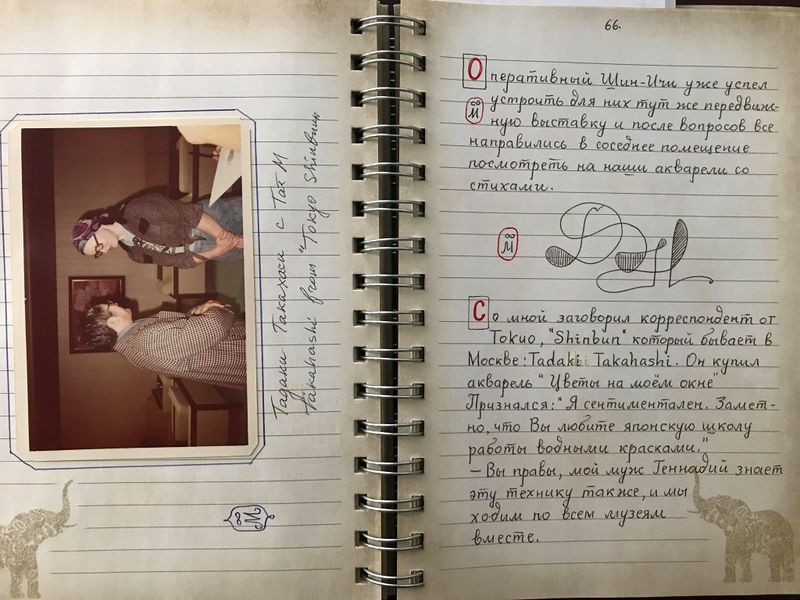 Тадаки Такахаси с Тат М
Takahashi from "Tokyo Shinbun
66.
Оперативный Шин-Ичи уже успел
устроить для них тут же передвиж-
ную выставку и после вопросов все
направились в соседнее помещение
посмотреть на наши акварели со
стихами.
Со мной заговорил корреспондент от
Токио, "Shinbun" который бывает в
Москве: Tadaki Takahashi. Он купил
акварель "Цветы на моём окне"
Признался: "Я сентиментален. Замет-
но, что Вы любите японскую школу
работы водными красками."
– Вы правы, мой муж Геннадий знает
эту технику также, и мы
ходим по всем музеям
вместе.